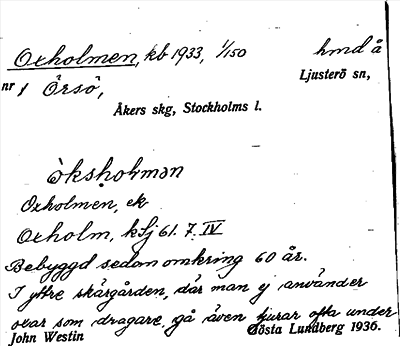 Oxholmen, kb 1933, 1/150 hmd å
nr 1 Örsö, Ljusterö sn,
Åkers skg, Stockholms l.
Oxholmen, ek
Oxholm, kSj 61. 7. IV
Bebyggd sedan omkring 60 år.
I yttre skärgården, där man ej använder
oxar som dragare, gå även tjurar ofta under
John Westin Gösta Lundberg 1936.